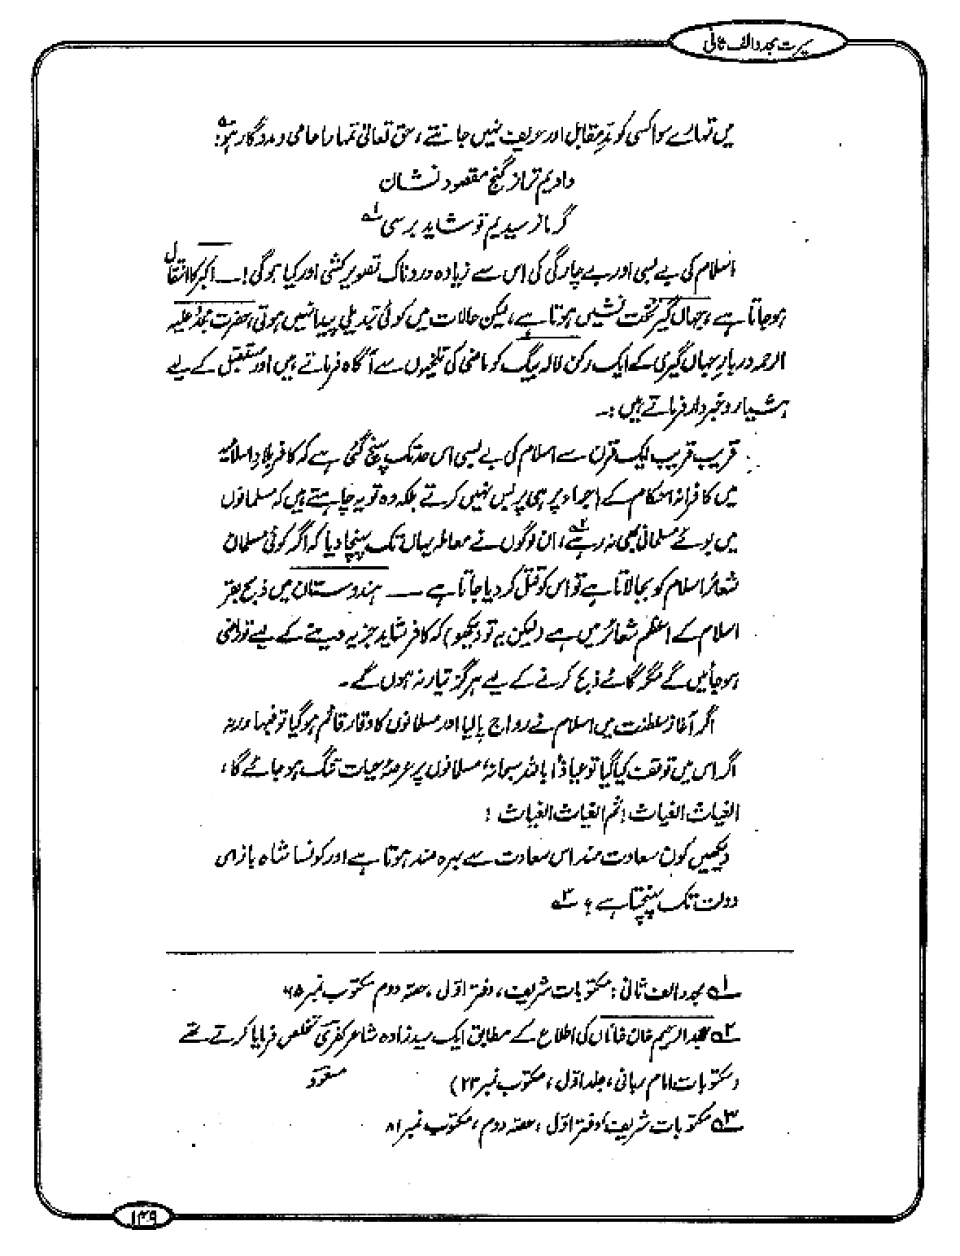 سیرت مجدد الف ثانی
میں تمہارے سوا کسی کو مدِ مقابل اور حریف نہیں جانتے، حق تعالیٰ تمہارا حامی و مددگار ہو؛
دادیم ترا ز گنج مقصود نشان
گر ما نرسیدیم تو شاید برسی ۱؎
اسلام کی بے بسی اور بے چارگی کی اس سے زیادہ دردناک تصویر کشی اور کیا ہوگی! — اکبر کا انتقال
ہو جاتا ہے، جہاں گیر تخت نشیں ہوتا ہے، لیکن حالات میں کوئی تبدیلی پیدا نہیں ہوتی، حضرت مجدد علیہ
الرحمہ دربارِ جہاں گیری کے ایک رکن لالہ بیگ کو ماضی کی تلخیوں سے آگاہ فرماتے ہیں اور مستقبل کے لیے
ہشیار و خبردار فرماتے ہیں :۔
قریب قریب ایک قرن سے اسلام کی بے بسی اس حد تک پہنچ گئی ہے کہ کافر بلادِ اسلامیہ
میں کافرانہ احکام کے اجراء پر ہی بس نہیں کرتے بلکہ وہ تو یہ چاہتے ہیں کہ مسلمانوں
میں بوئے مسلمانی بھی نہ رہے ۲؎، ان لوگوں نے معاملہ یہاں تک پہنچا دیا کہ اگر کوئی مسلمان
شعائر اسلام کو بجا لاتا ہے تو اس کو قتل کر دیا جاتا ہے — ہندوستان میں ذبح بقر
اسلام کے اعظم شعائر میں ہے (لیکن یہ تو دیکھو) کہ کافر شاید جزیہ دینے کے لیے تو راضی
ہو جائیں گے مگر گائے ذبح کرنے کے لیے ہرگز تیار نہ ہوں گے۔
اگر آغاز سلطنت میں اسلام نے رواج پا لیا اور مسلمانوں کا وقار قائم ہو گیا تو فبہا ورنہ
اگر اس میں توقف کیا گیا تو عیاذاً باللہ سبحانہ، مسلمانوں پر عرصۂ حیات تنگ ہو جائے گا،
الغیاث الغیاث! ثم الغیاث الغیاث !
دیکھیں کون سعادت مند اس سعادت سے بہرہ مند ہوتا ہے اور کونسا شاہ باز اس
دولت تک پہنچتا ہے؟ ۳؎
۱؎ مجدد الف ثانی : مکتوبات شریف، دفتر اول، حصہ دوم مکتوب نمبر ۶۵
۲؎ عبدالرحیم خان خاناں کی اطلاع کے مطابق ایک سید زادہ شاعر کفری تخلص فرمایا کرتے تھے
(مکتوبات امام ربانی، جلد اول، مکتوب نمبر ۲۳) مسعود
۳؎ مکتوبات شریف، دفتر اول، حصہ دوم، مکتوب نمبر ۸۱
۱۴۹